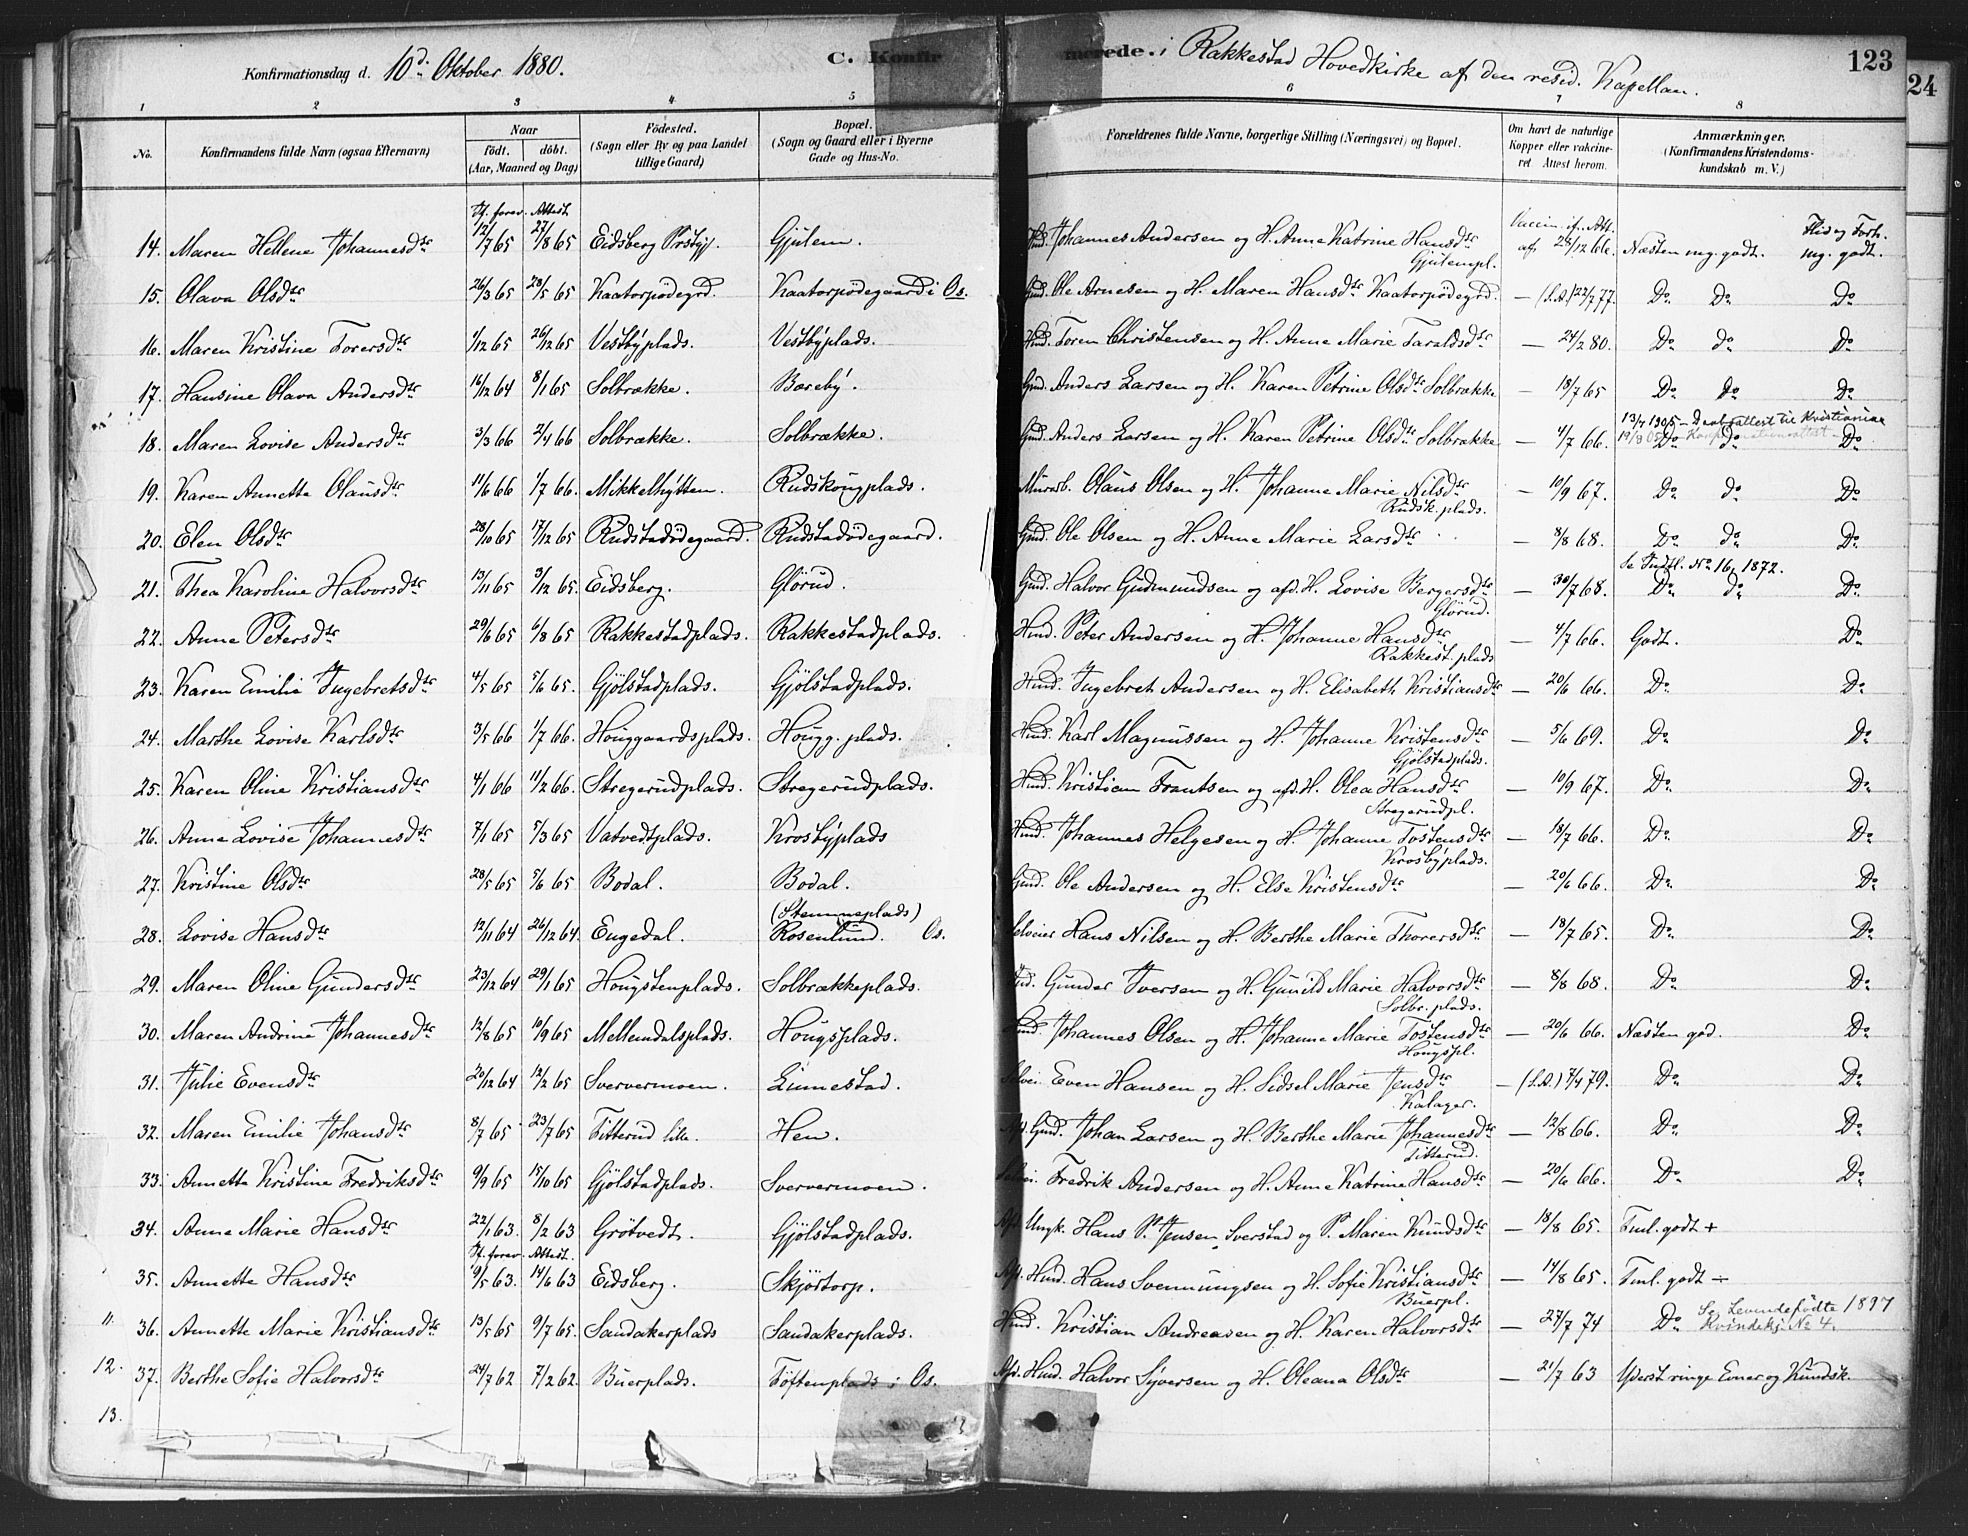 Konfirmationsdag d. 10d. Oktober 1880. C. Konfirmerede. i Rakkestad Hovedkirke af den resid. Kapellan. 123
24
1 2 3 4 5 6 7 8
No. Konfirmandens fulde Navn (ogsaa Efternavn) Naar født. døbt. (Aar, Maaned og Dag) Fødested. (Sogn eller By og paa Landet tillige Gaard) Bopæl. (Sogn og Gaard eller i Byerne Gade og Hus-No. Forældrenes fulde Navne, borgerlige Stilling (Næringsvei) og Bopæl. Om havt de naturlige Kopper eller vakcineret Attest herom. Anmærkninger. (Konfirmandens Kristendomskundskab m. V.)
If. forev. Attest
14. Maren Hellene Johannesdtr 12/7 65 27/8 65 Eidsberg Prstgj. Gjulem. Hmd. Johannes Andersen og H. Anne Katrine Hansdtr Gjulempl. Vaccin. if. Att. af 28/12 66. Næsten mg. godt. Flid og Forh. mg. godt.
15. Olava Olsdtr 26/3 65 28/5 65 Kaatorpødegrd. Kaatorpødegaard i Os. Gmd. Ole Arnesen og H. Maren Hansdtr Kaatorpødegrd. — (S.A.) 22/7 77. Do do Do
16. Maren Kristine Torersdtr 1/12 65 26/12 65 Vestbyplads. Vestbyplads. Hmd. Toren Christensen og H. Anne Marie Taraldsdtr — 24/2 80. Do do Do
17. Hansine Olava Andersdtr 16/12 64 8/1 65 Solbrække. Bæreby. Gmd. Anders Larsen og H. Karen Petrine Olsdtr Solbrække — 18/7 65 Do do Do
13/7 1905 – Daabsattest til Kristiania
18. Maren Lovise Andersdtr 3/3 66 2/4 66 Solbrække. Solbrække. Gmd. Anders Larsen og H. Karen Petrine Olsdtr Solbrække — 4/7 66. Do do Do
19. Karen Annette Olausdtr 11/6 66 1/7 66. Mikkelhytten. Rudskougplads. Murarb. Olaus Olsen og H. Johanne Marie Nilsdtr Rudsk. plads. — 10/9 67. Do do Do
20. Elen Olsdtr 28/10 65 17/12 65 Rudstadødegaard. Rudstadødegaard. Gmd. Ole Olsen og H. Anne Marie Larsdtr — 8/8 68. Do do Do
Se Indfl. No 16, 1872.
21. Thea Karoline Halvorsdtr 13/11 65 3/12 65. Eidsberg. Glørud. Gmd. Halvor Gudmundsen og afd. H. Lovise Bergersdtr Glørud. — 30/7 68. Do do Do
22. Anne Petersdtr 29/6 65 6/8 65 Rakkestadplads. Rakkestadplads. Hmd. Peter Andersen og H. Johanne Hansdtr Rakkest. plads — 4/7 66. Godt. Do
23. Karen Emilie Ingebretsdtr 4/5 65 5/6 65. Gjølstadplads. Gjølstadplads. Hmd. Ingebret Andersen og H. Elisabeth Kristiansdtr — 20/6 66. Do Do
24. Marthe Lovise Karlsdtr 3/5 66 1/7 66. Houggaardsplads. Hougg. plads. Hmd. Karl Magnussen og H. Johanne Kristensdtr Gjølstadplads. — 5/6 69. Do Do
25. Karen Oline Kristiansdtr 4/1 66 11/2 66. Stregerudplads. Stregerudplads. Hmd. Kristian Frantsen og afd. H. Olea Hansdtr Stregerudpl. — 10/9 67. Do Do
26. Anne Lovise Johannesdtr 7/1 65 5/3 65 Vatvedtplads. Krosbyplads Hmd. Johannes Helgesen og H. Johanne Tostensdtr Krosbyplads. — 18/7 66. Do Do
27. Kristine Olsdtr 28/5 65 5/6 65 Bodal. Bodal. Gmd. Ole Andersen og H. Else Kristensdtr — 20/6 66. Do Do
28. Lovise Hansdtr 12/11 64 26/12 64. Engedal. (Stemmeplads) Rosenlund. Os. Selveier Hans Nilsen og H. Berthe Marie Thorersdtr — 18/7 65. Do Do
29. Maren Oline Gundersdtr 23/12 64 29/1 65 Hougstenplads. Solbrækkeplads. Gunder Iversen og H. Gunild Marie Halvorsdtr Solbr. plads. — 8/8 68. Do Do
30. Maren Andrine Johannesdtr 12/8 65 10/9 65 Mellemdalsplads. Hougsplads. Hmd. Johannes Olsen og H. Johanne Marie Tostensdtr Hougspl. — 20/6 66. Næsten god. Do
31. Julie Evensdtr 20/12 64 12/2 65 Sververmoen. Lunestad. Selvei. Even Hansen og H. Sidsel Marie Jensdtr Kalager. — (S.A.) 7/4 79. Do Do
32. Maren Emilie Johansdtr 8/7 65 23/7 65 Titterud lille. Hen. Afd. Gmd. Johan Larsen og H. Berthe Marie Johannesdtr Titterud. — 12/8 66. Do Do
33. Annette Kristine Fredriksdtr 9/9 65 15/10 65 Gjølstadplads. Sververmoen. Selvei. Fredrik Andersen og H. Anne Katrine Hansdtr — 20/6 66. Do Do
34. Anne Marie Hansdtr 22/1 63. 8/2 63 Grøtvedt. Gjølstadplads. Afd. Ungk. Hans P. Jensen Sverstad og P. Maren Knudsdtr — 18/8 65. Tml. godt +
If. forev. Attest.
35. Annette Hansdtr 9/5 63. 14/6 63 Eidsberg. Skjørtorp. Afd. Hmd. Hans Svennungsen og H. Sofie Kristiansdtr Buerpl. — 14/8 65. Tml. godt ÷
11. 36. Annette Marie Kristiansdtr 13/5 65 9/7 65. Sandakerplads Sandakerplads. Hmd. Kristian Andreasen og H. Karen Halvorsdtr — 27/7 74 Do Se Levendefødte 1897 Kvindekj. No 4.
12. 37. Berthe Sofie Halvorsdtr 24/7 62 7/2 62. Buerplads. Tøftenplads i Os. Afd. Hmd. Halvor Syversen og H. Oleana Olsdtr — 21/7 63 Yderst ringe Evner og Kundsk.
13.